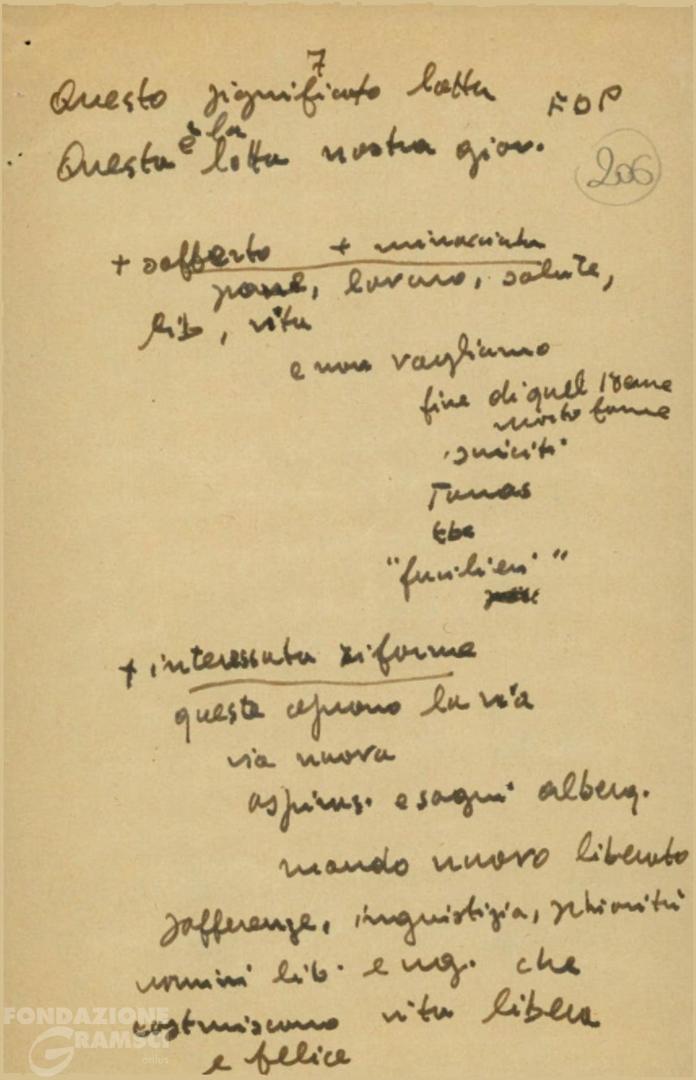 7
Questo significato lotta FDP
Questa è la lotta nostra giov. 206
+ sofferto + minacciata
pane, lavoro, salute,
lib, vita
e non vogliamo
fine di quel
morto fame
suicidi
Ebe
"fucilieri"
+ interessata riforme
queste aprono la via
via nuova
aspiraz. e sogni alberg.
mondo nuovo liberato
sofferenze, ingiustizia, schiavitù
uomini lib. e ug. che
costruiscono vita libera
e felice
FONDAZIONE
GRAMSCI
onlus